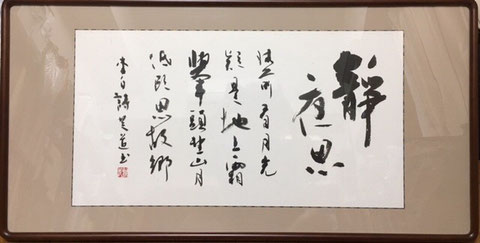 靜夜思
牀前看月光
疑是地上霜
舉頭望山月
低頭思故鄉
李白詩 道書